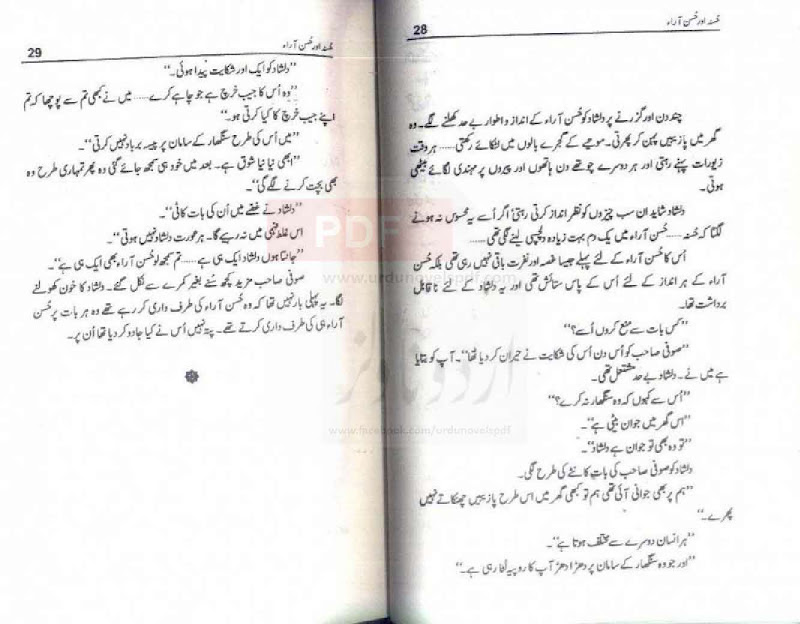 28
حُسنہ اور حُسن آراء
چند دن اور گزرنے پر دلشاد کو حُسن آراء کے انداز و اطوار بے حد کھلنے لگے۔ وہ
گھر میں پازیبیں پہن کر پھرتی۔ موتیے کے گجرے بالوں میں لٹکائے رکھتی...... ہر وقت
زیورات پہنے رہتی اور ہر دوسرے چوتھے دن ہاتھوں اور پیروں پر مہندی لگائے بیٹھی
ہوتی۔
دلشاد شاید ان سب چیزوں کو نظر انداز کرتی رہتی' اگر اُسے یہ محسوس نہ ہونے
لگتا کہ حُسنہ...... حُسن آراء میں یک دم بہت زیادہ دلچسپی لینے لگی تھی......
اُس کا حُسن آراء کے لئے پہلے جیسا غصہ اور نفرت باقی نہیں رہی تھی بلکہ حُسن
آراء کے ہر انداز کے لئے اُس کے پاس ستائش تھی اور یہ دلشاد کے لئے ناقابل
برداشت تھا۔
”کس بات سے منع کروں اُسے؟“
”صوفی صاحب کو اُس دن اُس کی شکایت نے حیران کر دیا تھا“۔ آپ کو بتایا
ہے میں نے۔ دلشاد بے حد مشتعل تھی۔
”اُس سے کہوں کہ وہ سنگھار نہ کرے؟“
”اس گھر میں جوان بیٹی ہے“۔
”تو وہ بھی تو جوان ہے دلشاد“۔
دلشاد کو صوفی صاحب کی بات کانٹے کی طرح لگی۔
”ہم پر بھی جوانی آئی تھی ہم تو کبھی گھر میں اس طرح پازیبیں چھنکاتے نہیں
پھرے۔“
”ہر انسان دوسرے سے مختلف ہوتا ہے“۔
”اور جو وہ سنگھار کے سامان پر دھڑا دھڑ آپ کا روپیہ لٹا رہی ہے۔“
29
حُسنہ اور حُسن آراء
”دلشاد کو ایک اور شکایت پیدا ہوئی۔“
”وہ اُس کا جیب خرچ ہے جو چاہے کرے...... میں نے کبھی تم سے پوچھا کہ تم
اپنے جیب خرچ کا کیا کرتی ہو۔“
”میں اُس کی طرح سنگھار کے سامان پر پیسہ برباد نہیں کرتی“۔
”ابھی نیا نیا شوق ہے۔ بعد میں خود ہی سمجھ جائے گی وہ پھر تمہاری طرح وہ
بھی بچت کرنے لگے گی“۔
”دلشاد نے غصے میں اُن کی بات کاٹی“۔
اس غلط فہمی میں نہ رہیے گا۔ ہر عورت دلشاد نہیں ہوتی“۔
”جانتا ہوں دلشاد ایک ہی ہے...... تم سمجھ لو حُسن آراء بھی ایک ہی ہے“۔
صوفی صاحب مزید کچھ سُنے بغیر کمرے سے نکل گئے۔ دلشاد کا خون کھولنے
لگا۔ یہ پہلی بار نہیں تھا کہ وہ حُسن آراء کی طرف داری کر رہے تھے وہ ہر بات پر حُسن
آراء ہی کی طرف داری کرتے تھے۔ پتہ نہیں اُس نے کیا جادو کر دیا تھا اُن پر۔
PDF
www.urdunovelspdf.com
اردو ناولز
www.facebook.com/urdunovelspdf